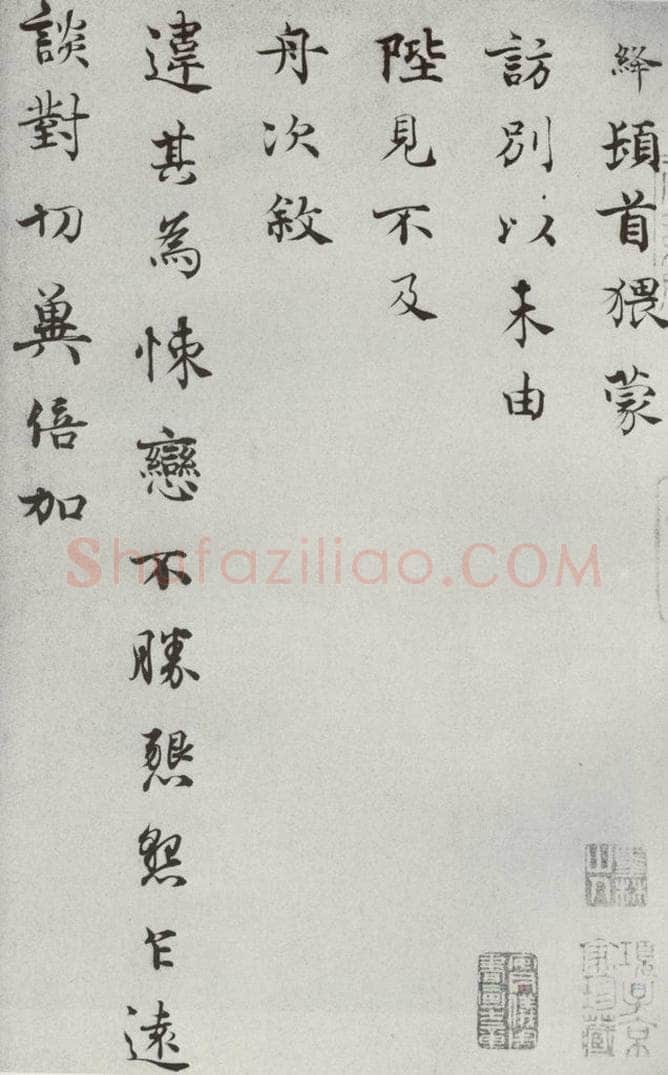 絳頓首猥蒙
訪別以未由
陛見不及
舟次敘
違其為悚戀不勝懇懇乍遠
談對切冀倍加
Shufaziliao.COM